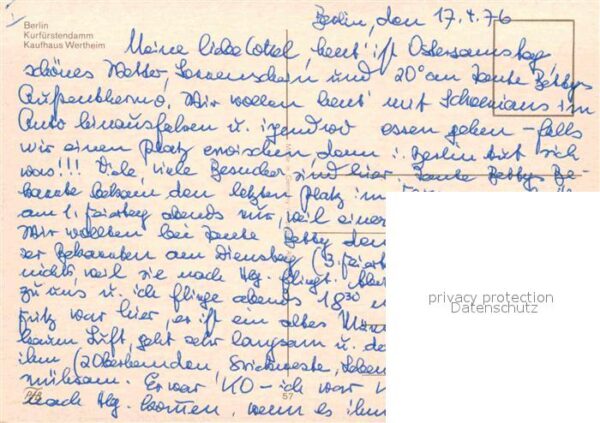 Berlin
Kurfürstendamm
Kaufhaus Wertheim
Berlin, den 17.4.76
Meine liebe Lottel, heut' ist Ostersamstag,
schönes Wetter, Sonnenschein und 20° an Tante Bettys
Außenthermo. Wir wollen heut' mit Schoenians im
Auto hinausfahren u. irgendwo essen gehen – falls
wir einen Platz erwischen, denn i. Berlin tut sich
was!!! Viele, viele Besucher sind hier. Tante Bettys Be-
kannte bekam den letzten Platz im
am 1. Feiertag abends nur, weil einer
Wir wollten bei Tante Betty den
ser Bekannten am Dienstag (3. Feiert
nichts, weil sie nach Hbg. fliegt.
zu uns u. ich fliege abends 18³⁰
fritz war hier, er ist ein altes
kaum Luft, geht sehr langsam u. de
ihm (2 Oberhemden, Strickweste,
mühsam. Er war KO – ich war
nach Hbg. kommen, wenn es ihm
57
privacy protection
Datenschutz